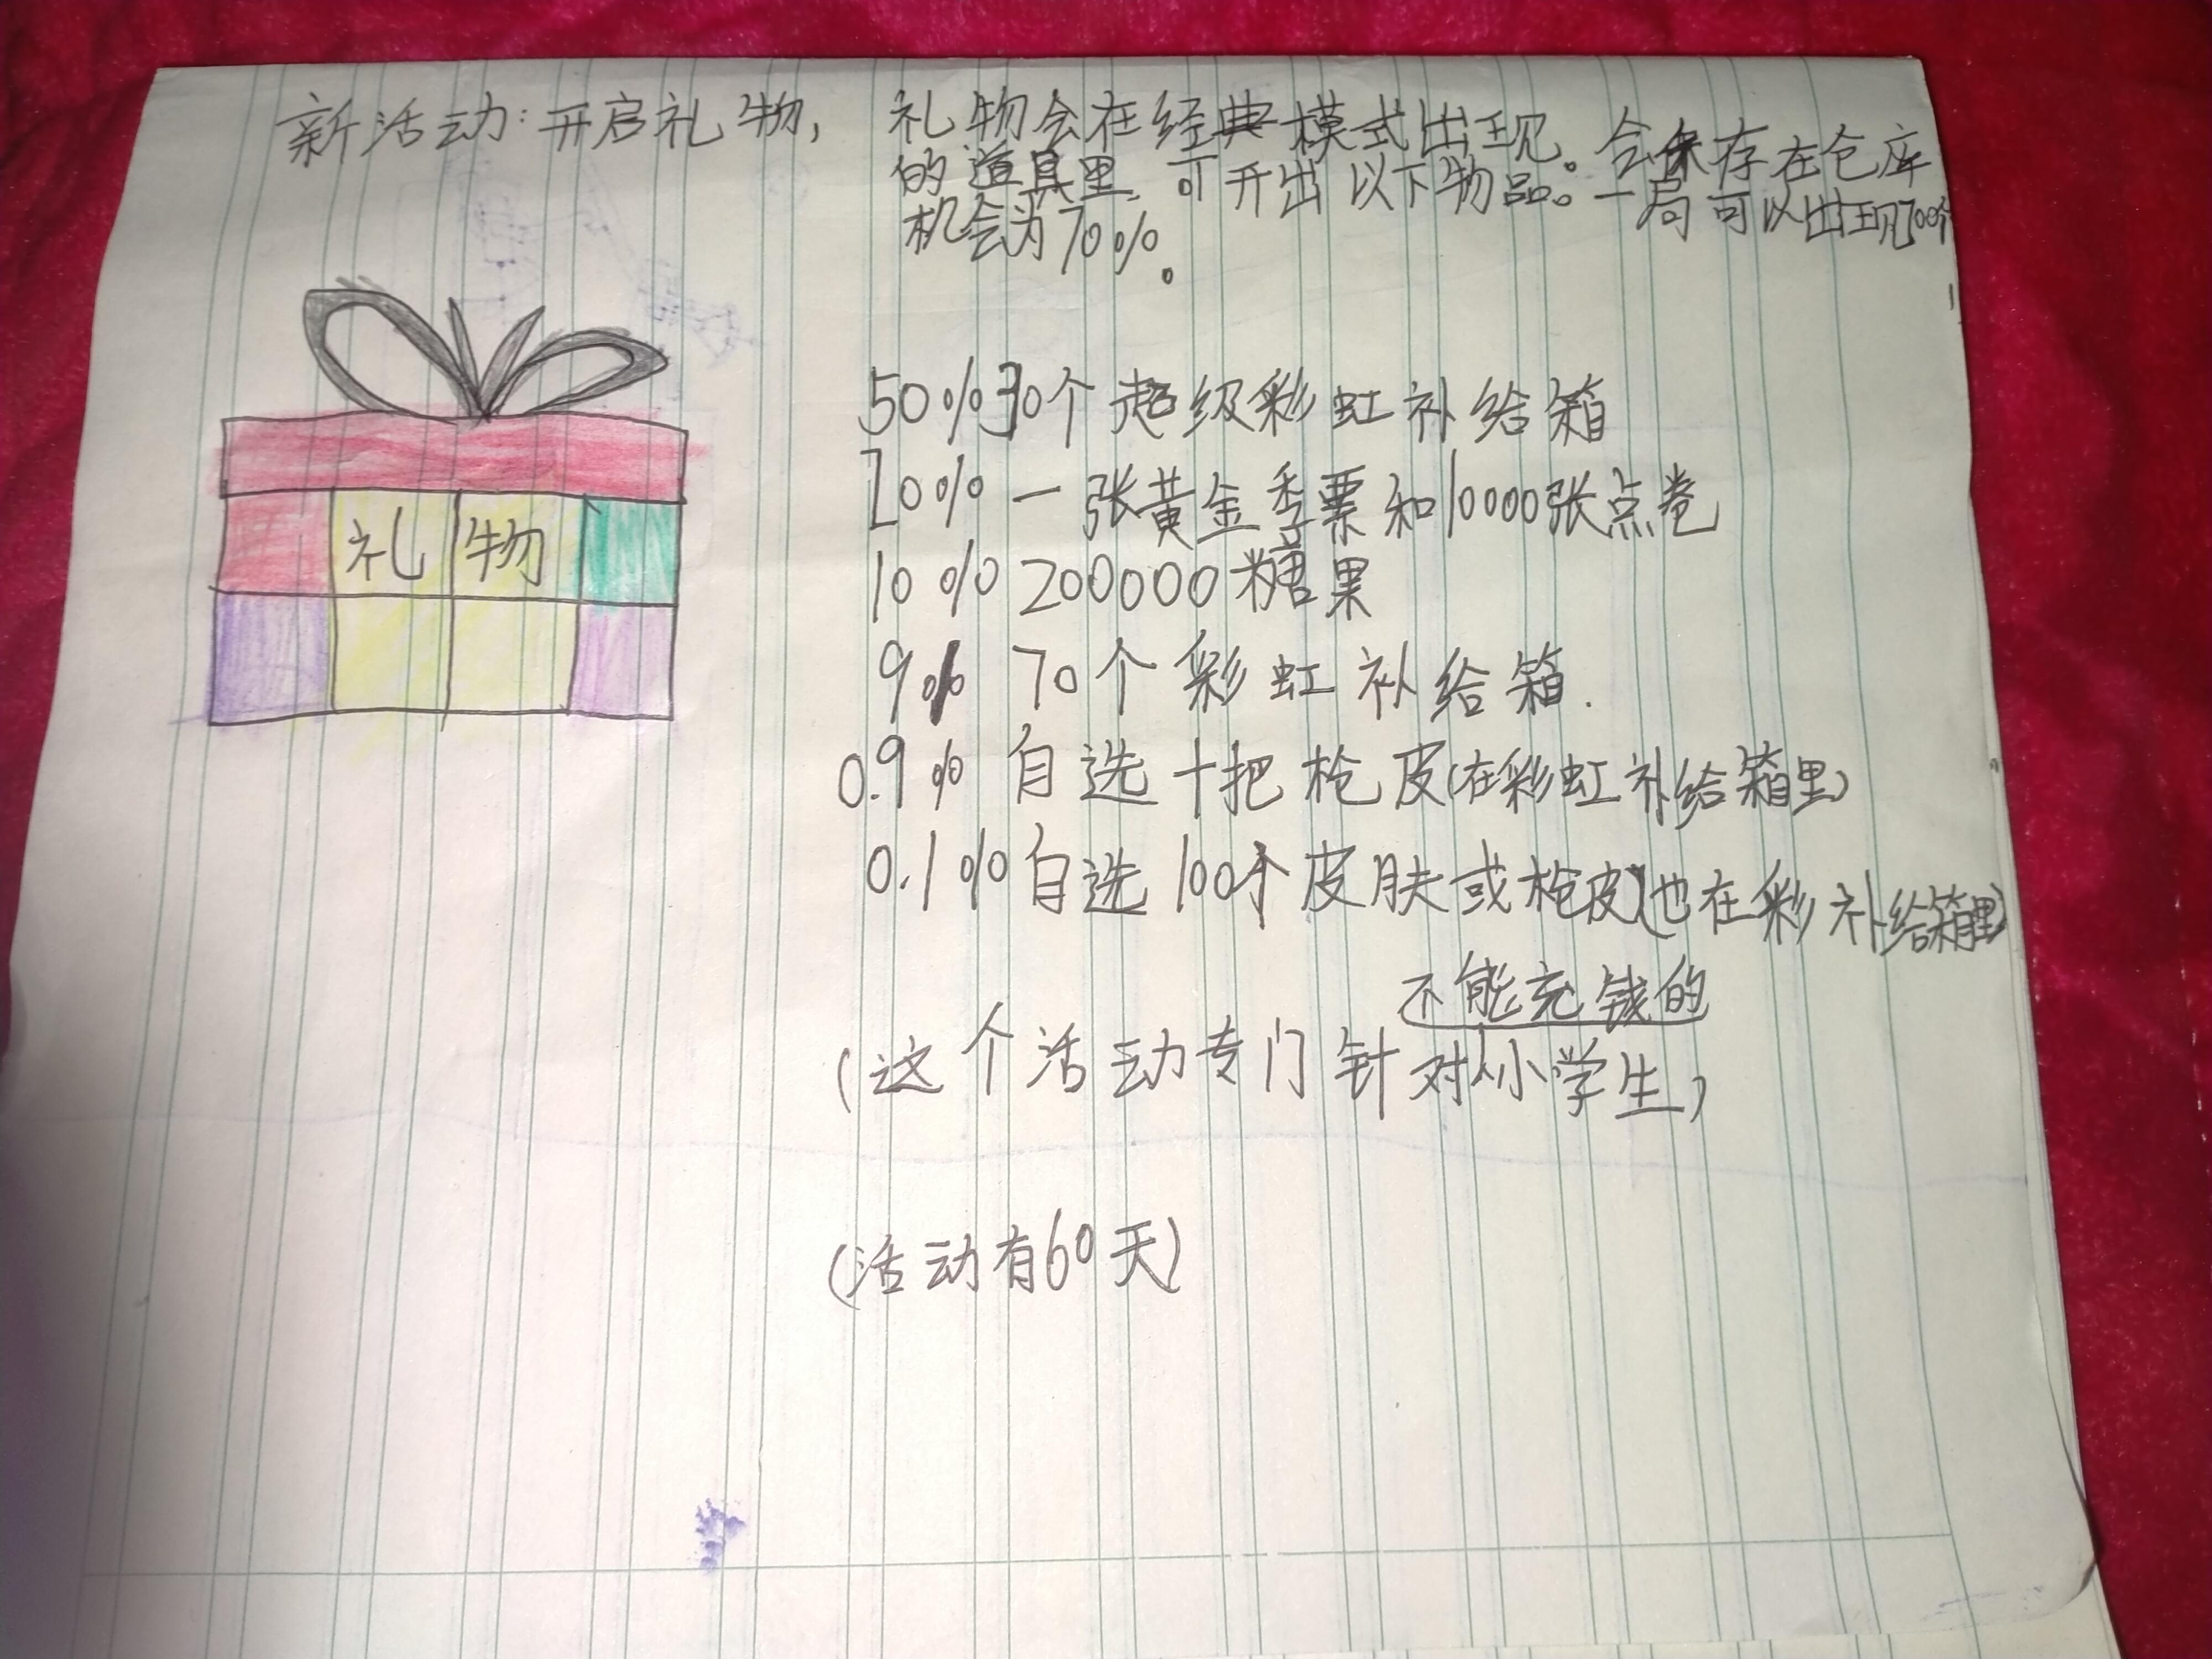 新活动：开启礼物，
礼物会在经典模式出现。会保存在仓库
的道具里，可开出以下物品。一局可以出现700个
机会为70%。
礼物
50% 30个超级彩虹补给箱
20% 一张黄金季票和10000张点卷
10% 200000糖果
9% 70个彩虹补给箱.
0.9% 自选十把枪皮(在彩虹补给箱里)
0.1% 自选100个皮肤或枪皮(也在彩补给箱里)
不能充钱的
(这个活动专门针对小学生)
(活动有60天)